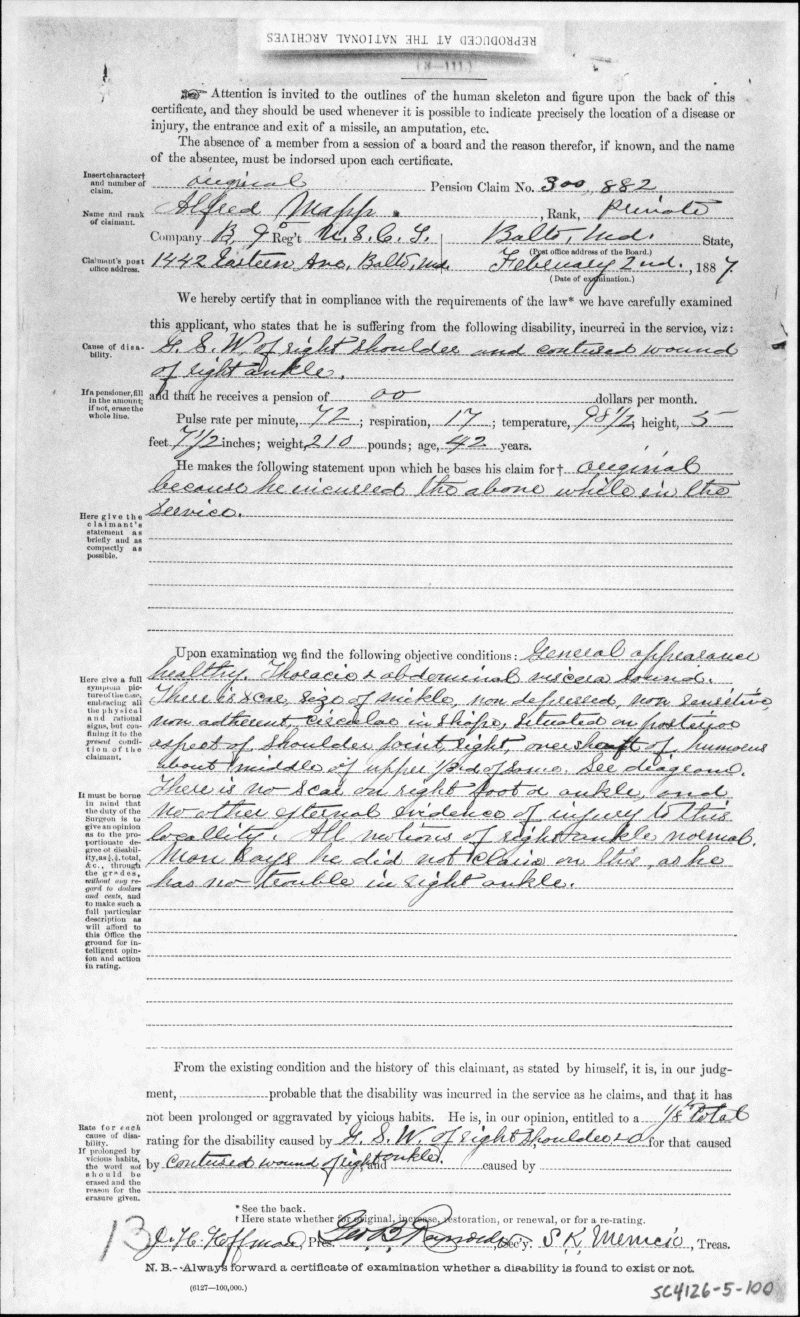 REPRODUCED AT THE NATIONAL ARCHIVES
(111—B)
☞ Attention is invited to the outlines of the human skeleton and figure upon the back of this
certificate, and they should be used whenever it is possible to indicate precisely the location of a disease or
injury, the entrance and exit of a missile, an amputation, etc.
The absence of a member from a session of a board and the reason therefor, if known, and the name
of the absentee, must be indorsed upon each certificate.
Insert character†
and number of
claim.
original Pension Claim No. 300,882
Name and rank
of claimant.
Alfred Mapp. , Rank, Private
Company B, 9" Reg't U.S.C.T. Balto, Md. State,
(Post office address of the Board.)
Claimant's post
office address.
1442 Eastern Ave, Balto, Md. February 2nd. , 1887
(Date of examination.)
We hereby certify that in compliance with the requirements of the law* we have carefully examined
this applicant, who states that he is suffering from the following disability, incurred in the service, viz:
Cause of disa-
bility.
G. S. W. of right shoulder and contused wound
of right ankle.
If a pensioner, fill
in the amount;
if not, erase the
whole line.
and that he receives a pension of 00 dollars per month.
Pulse rate per minute, 72 ; respiration, 17 ; temperature, 98 1/2 height, 5
feet 7 1/2 inches; weight, 210 pounds; age, 42 years.
He makes the following statement upon which he bases his claim for† original
because he incurred the above while in the
service.
Here give the
claimant's
statement as
briefly and as
compactly as
possible.
Upon examination we find the following objective conditions: General appearance
healthy. Thoracic & abdominal viscera sound.
There is scar, size of nickle, non depressed, non sensitive,
non adherent, circular in shape, situated on posterior
aspect of shoulder joint, right, over shaft of humerus
about middle of upper 1/3rd of same. See diagram.
There is no scar on right foot or ankle, and
no other external evidence of injury to this
locallity. All motions of right ankle normal.
Man says he did not claim on this, as he
has no trouble in right ankle.
Here give a full
symptom pic-
ture of the case,
embracing all
the physical
and rational
signs, but con-
fining it to the
present condi-
tion of the
claimant.
It must be borne
in mind that
the duty of the
Surgeon is to
give an opinion
as to the pro-
portionate de-
gree of disabil-
ity, as ¼, ½, total,
&c., through
the grades,
without any re-
gard to dollars
and cents, and
to make such a
full particular
description as
will afford to
this Office the
ground for in-
telligent opin-
ion and action
in rating.
From the existing condition and the history of this claimant, as stated by himself, it is, in our judg-
ment, probable that the disability was incurred in the service as he claims, and that it has
not been prolonged or aggravated by vicious habits. He is, in our opinion, entitled to a 1/8 total
rating for the disability caused by G. S. W. of right shoulder & 0 for that caused
by contused wound of right ankle. and caused by
Rate for each
cause of disa-
bility.
If prolonged by
vicious habits,
the word not
should be
erased and the
reason for the
erasure given.
* See the back.
† Here state whether for original, increase, restoration, or renewal, or for a re-rating.
13 J. H. Hoffman, Pres. Geo B. Reynolds, Sec'y. S. K. Merrick, Treas.
N. B.--Always forward a certificate of examination whether a disability is found to exist or not.
(6127—100,000.)
SC4126-5-100